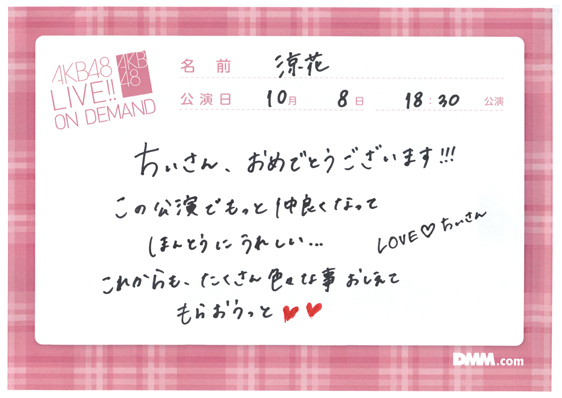 AKB48
LIVE!!
ON DEMAND
AKB
48
名前 涼花
公演日 10月 8日 18:30 公演
ちぃさん、おめでとうございます!!!
この公演でもっと仲良くなって
ほんとうにうれしい...
LOVE♡ちぃさん
これからも、たくさん色々な事おしえて
もらおうっと♥♥
DMM.com